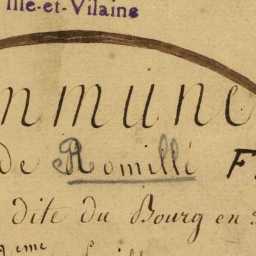 Ille-et-Vilaine
mmune
de Romillé F
dite du Bourg en 3
9eme